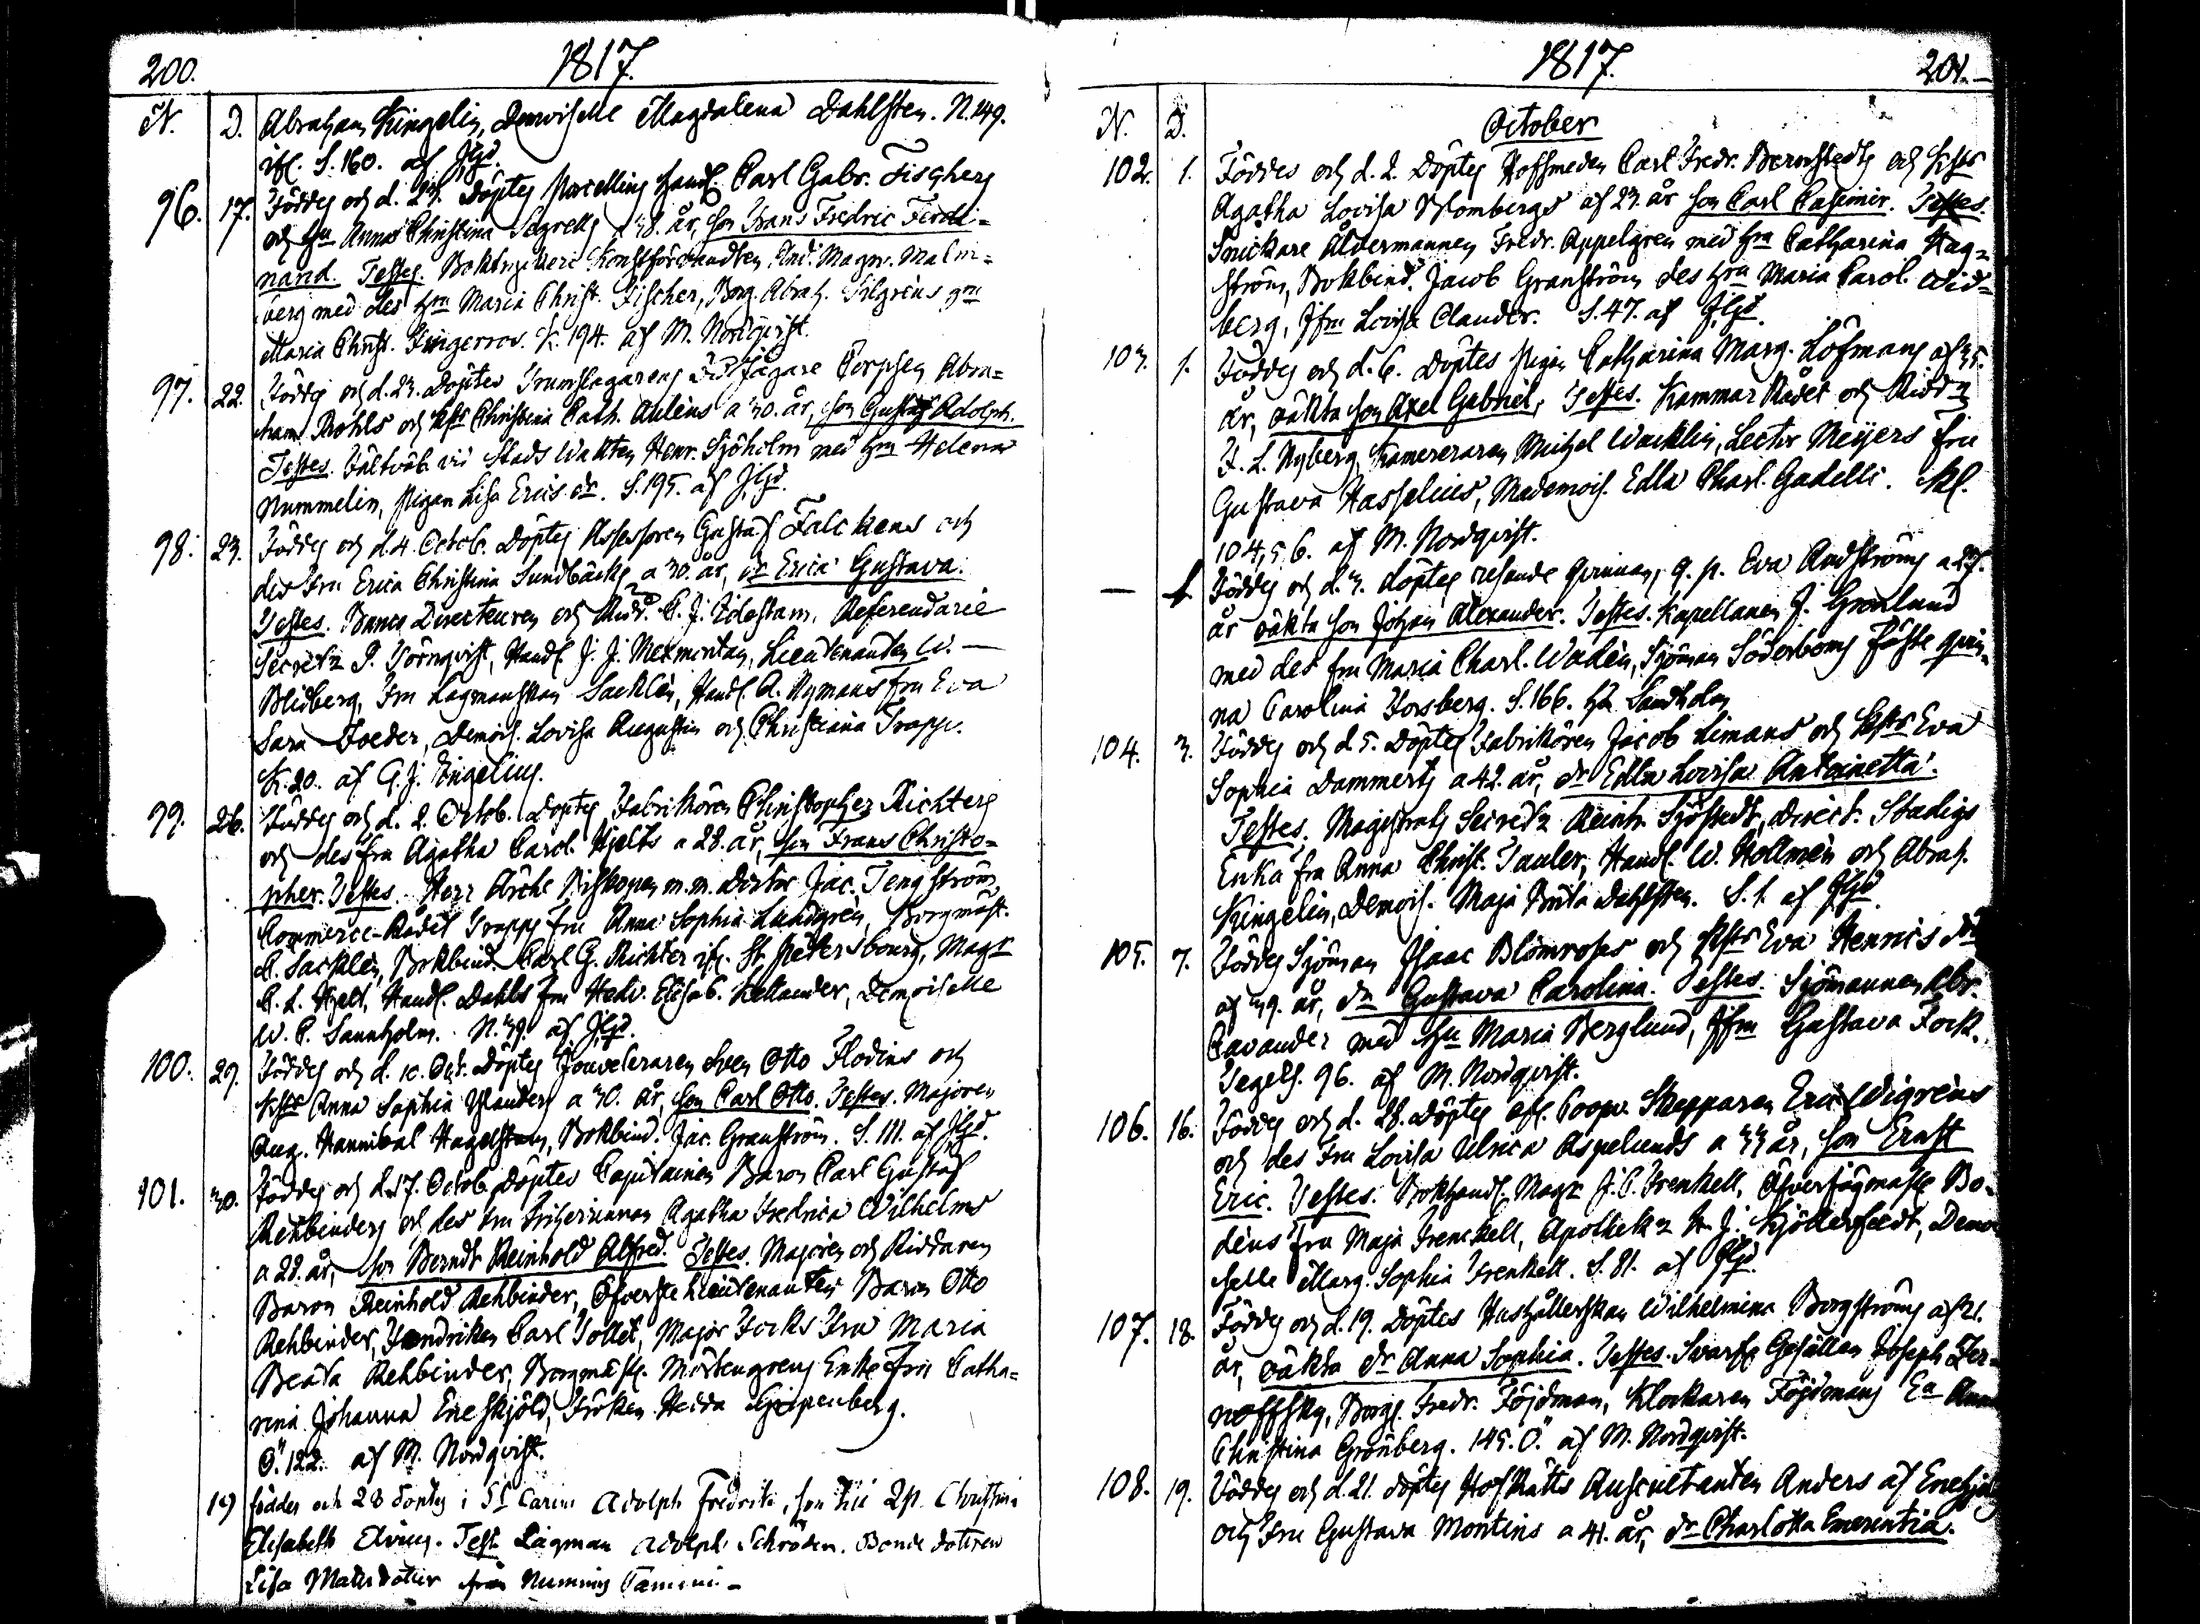 200.
1817.
N. D. Abraham Kingelin, Demoiselle Magdalena Dahlsten. N. 149.
ifl. S. 160. af Jlgd.
96. 17. Föddes och d. 24. Döptes Handl. Carl Gabr. Fischers
och hu Anna Christina Segrells 38. år, son Frans Fredric Ferdi=
nand. Testes. Boktryckeri Konstförvandten And. Magn. Malm=
berg med des hru Maria Christ. Fischer, Borg. Abrah. Selgréns
Maria Christ. K. 194. af M. Nordqvist.
97. 22. Föddes och d. 23. Döptes Trumslagarens Jägare Corpsen Abra=
ham Rohls och hsts Christina Cath. Auléns a 30. år, son Gustaf Adolph.
Testes. vid Stads Wakten Henr. Sjöholm med hru Helena
Nummelin, Pigan Lisa Ericsdr. S. 195. af Jlgd.
98. 23. Föddes och d. 4. Octob. Döptes Assessoren Gustaf Falckens och
des Fru Erica Christina Sundbäcks a 30. år, dr Erica Gustava.
Testes. Banco Directeuren och Ridd. C. J. Idestam, Referendarie
Secret: P. Törnqvist, Handl. J. J. Mexmontan, Lieutenanten W.
Blidberg, Fru Lagmanskan Sacklén, Handl. A. Nymans fru Eva
Sara Foeder, Demois. Lovisa Augustin och Christiana Trapp.
K. 20. af G. J. Engelius.
99. 26. Föddes och d. 2. Octob. Döptes Fabrikören Christopher Richters
och des fru Agatha Carol. Hjelts a 28. år, son Frans Christo=
pher. Testes. Herr Ärche Biskopen m.m. Doctor Jac. Tengström
Commerce-Rådet Trapps fru Anna Sophia Lundgrén, Borgmäst.
C. Sacklén, Bokbind. Carl G. Richter ifr. St. Petersbourg, Mag:r
C. L. Hjelt, Handl. Dahls fru Hedv. Elisab. Kellander, Demoiselle
W. C. Sannholm. N. 39. af Jlgd.
100. 29. Föddes och d. 10. Oct. Döptes Jouveleraren Sven Otto Flodins och
hsts Anna Sophia Ulanders a 30. år, son Carl Otto. Testes. Majoren
Aug. Hannibal Hagelstam, Bokbind. Jac. Granström. S. 111. af Jlgd.
101. 30. Föddes och d. 17. Octob. Döptes Capitainen Baron Carl Gustaf
Rehbinders och des fru Friherinnan Agatha Fredrica Wilhelms
a 28. år, son Berndt Reinhold Alfred. Testes. Majoren och Riddaren
Baron Reinhold Rehbinder, Öfverste Lieutenanten Baron Otto
Rehbinder, Fendriken Carl Tollet, Major Focks Fru Maria
Beata Rehbinder, Borgmäst. Mårtengrens Enke fru Catha=
rina Johanna Eneskjöld, Fröken Hedda Gripenberg.
Ö. 122. af M. Nordqvist.
19 föddes och 28 döptes i St Carins Adolph Fredrik, son till Christina
Elisabeth Elving. Test. Lagman Adolph Schröder. Bonde dottren
Lisa Matsdotter från Nummis
1817.
201.
N. D. October
102. 1. Föddes och d. 2. Döptes Hoffmeden Carl Fredr. Bernstedts och hsts
Agatha Lovisa Blombergs af 23. år son Carl Casimir. Testes.
Snickare Åldermannen Fredr. Appelgren med hru Catharina Hag=
ström, Bokbind. Jacob Granström des hru Maria Carol. Wid=
berg, Jfru Lovisa Clauder. S. 47. af Jlgd.
103. 1. Föddes och d. 6. Döptes Pigan Catharina Marg. Löfmans af 35.
år, oäkta son Axel Gabriel, Testes. Kammar Rådet och Ridd:
F. L. Nyberg, Kamereraren Michel Wacklin, Lector Meijers fru
Gustava Hasselius, Mademois. Edla Charl. Gadelli. Kl.
104, 5. 6. af M. Nordqvist.
— 1. Föddes och d. 3. döptes resande qvinnan, q. p. Eva Andströms a 27.
år oäkta son Johan Alexander. Testes. Kapellanen J. Grönlund
med des fru Maria Charl. Wadén, Sjöman Söderboms fäste qvin=
na Carolina Forsberg. S. 166. Sandholm
104. 3. Föddes och d. 5. Döptes Fabrikören Jacob Limans och hsts Eva
Sophia Dammerts a 42. år, dr Edla Lovisa Antoinetta.
Testes. Magistrats Secret: Reinh. Sjöstedt, Direct. Stadigs
Enka fru Anna Christ. Tauler, Handl. W. Hollmén och Abrah.
Kingelin, Demois. Maja Brita Dahlsten. S. 1. af Jlgd.
105. 7. Föddes Sjöman Isaac Blomroses och hsts Eva Henricsdr
af 39. år, dr Gustava Carolina. Testes. Sjömannen Abr.
Cavander med hru Maria Berglund, Jfru Gustava Fock.
Tegels. 96. af M. Nordqvist.
106. 16. Föddes och d. 28. Döptes Coopv. Skepparen Eric Wigréns
och des Fru Lovisa Ulrica Aspelunds a 33 år, son Ernst
Eric. Testes. Bokhandl. Mag:r J. C. Frenkell, Öfverjägmäst. Bo=
déns fru Maja Frenckell, Apothek: A. J. Kjöllerfeldt, Demoi
selle Marg. Sophia Frenkell. S. 81. af Jlgd.
107. 18. Föddes och d. 19. Döptes Hushållerskan Wilhelmina Borgströms af 21.
år, oäkta dr Anna Sophia. Testes. Svarf. Gesällen Joseph Zer=
noffsky, Borg. Fredr. Föjdman, Klockaren Föjdmans Ea Anna
Christina Grönberg. 145. Ö. af M. Nordqvist.
108. 19. Föddes och d. 21. döptes HofRätts Auscultanten Anders af Enehjelm
och Fru Gustava Montins a 41. år, dr Charlotta Emerentia.